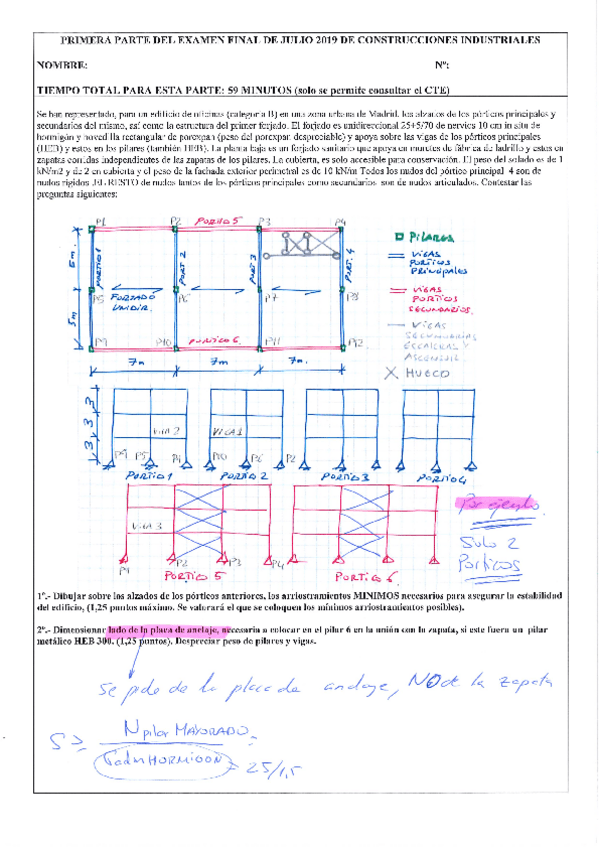 PRIMERA PARTE DEL EXAMEN FINAL DE JULIO 2019 DE CONSTRUCCIONES INDUSTRIALES
NOMBRE: Nº:
TIEMPO TOTAL PARA ESTA PARTE: 59 MINUTOS (solo se permite consultar el CTE)
Se han representado, para un edificio de oficinas (categoría B) en una zona urbana de Madrid, los alzados de los pórticos principales y
secundarios del mismo, así como la estructura del primer forjado. El forjado es unidireccional 25+5/70 de nervios 10 cm in situ de
hormigón y bovedilla rectangular de porexpan (peso del porexpan despreciable) y apoya sobre las vigas de los pórticos principales
(HEB) y estos en los pilares (también HEB). La planta baja es un forjado sanitario que apoya en muretes de fábrica de ladrillo y estos en
zapatas corridas independientes de las zapatas de los pilares. La cubierta, es solo accesible para conservación. El peso del solado es de 1
kN/m2 y de 2 en cubierta y el peso de la fachada exterior perimetral es de 10 kN/m Todos los nudos del pórtico principal 4 son de
nudos rígidos EL RESTO de nudos tantos de los pórticos principales como secundarios son de nudos articulados. Contestar las
preguntas siguientes:
P1 P2 PORTICO 5 P3 P4
PILARES
VIGAS PORTICOS PRINCIPALES
5m. PORTICO 1 PORT. 2 PORT. 3 PORT. 4
P5 FORJADO UNIDIR. P6 P7 P8
VIGAS PORTICOS SECUNDARIOS.
5m
VIGAS SECUNDARIAS ESCALERAS Y ASCENSOR.
P9 P10 PORTICO 6. P11 P12
HUECO
7m 7m 7m.
3 3 3
VIGA 2 VIGA 1
P9 P5 P1 P10 P6 P2
PORTICO 1 PORTICO 2 PORTICO 3 PORTICO 4
VIGA 3
P1 P2 P3 P4
PORTICO 5 PORTICO 6.
Por ejemplo
Solo 2
Porticos
1º.- Dibujar sobre los alzados de los pórticos anteriores, los arriostramientos MINIMOS necesarios para asegurar la estabilidad
del edificio, (1,25 puntos máximo. Se valorará el que se coloquen los mínimos arriostramientos posibles).
2º.- Dimensionar lado de la placa de anclaje, necesaria a colocar en el pilar 6 en la unión con la zapata, si este fuera un pilar
metálico HEB 300. (1,25 puntos). Despreciar peso de pilares y vigas.
Se pide de la placa de anclaje, NO de la zapata
S ≥ Npilar MAYORADO
σadm HORMIGON = 25/1,5